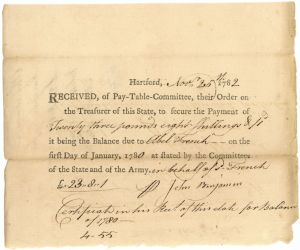 Hartford, Novr 25th 1782
RECEIVED, of Pay-Table-Committee, their Order on
the Treasurer of this State, to secure the Payment of
Twenty three pounds eight shillings & /1
it being the Balance due to Abel French — on the
first Day of January, 1781 as stated by the Committees
of the State and of the Army, in behalf of sd. French
£23-8-1
John Benjamin
Certificate in his of this date for Balance
of 1780
4-55